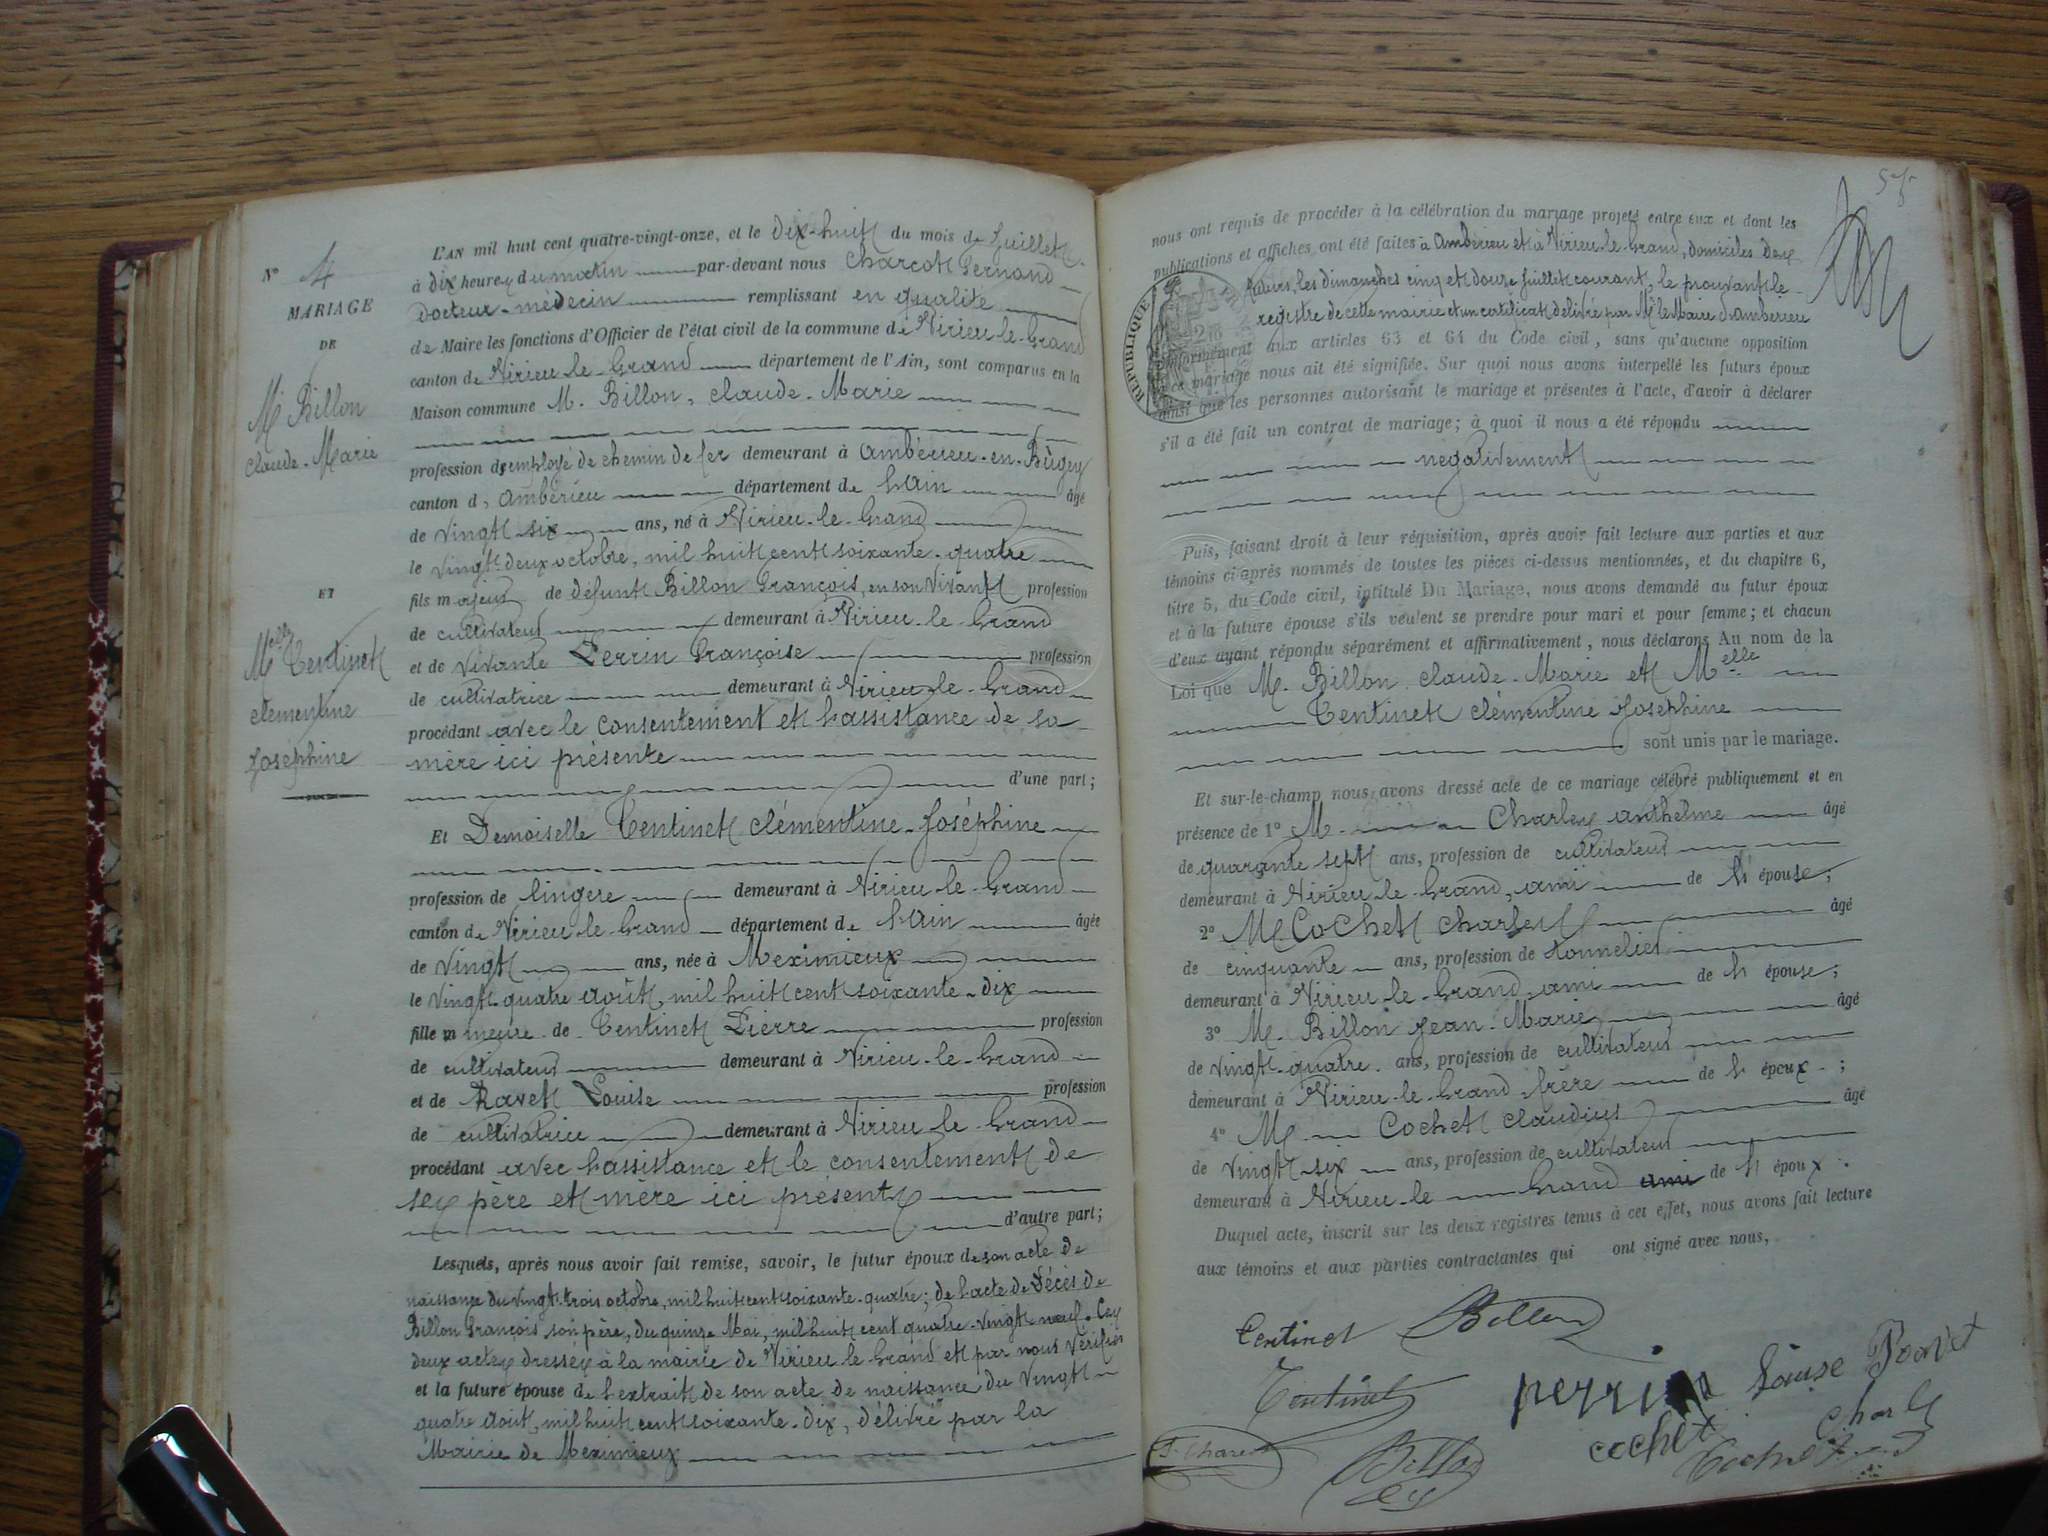 N° 4
MARIAGE
DE
M. Billon
Claude-Marie
ET
Melle Tentinet
Clémentine
Joséphine
L'AN mil huit cent quatre-vingt-onze, et le dix-huit du mois de Juillet
à dix heures du matin par-devant nous Charcot Fernand
Docteur-médecin remplissant en qualité
de Maire les fonctions d'Officier de l'état civil de la commune de Virieu-le-Grand
canton de Virieu-le-Grand département de l'Ain, sont comparus en la
Maison commune M. Billon, Claude-Marie
profession d'employé de chemin de fer demeurant à Ambérieu-en-Bugey
canton d'Ambérieu département de l'Ain âgé
de vingt-six ans, né à Virieu-le-Grand
le vingt-deux octobre, mil huit cent soixante-quatre
fils majeur de défunt Billon François, en son vivant profession
de cultivateur demeurant à Virieu-le-Grand
et de vivante Perrin Françoise profession
de cultivatrice demeurant à Virieu-le-Grand
procédant avec le consentement et l'assistance de sa
mère ici présente
d'une part;
Et Demoiselle Tentinet Clémentine-Joséphine
profession de lingère demeurant à Virieu-le-Grand
canton de Virieu-le-Grand département de l'Ain âgée
de vingt ans, née à Meximieux
le vingt-quatre août, mil huit cent soixante-dix
fille mineure de Tentinet Pierre profession
de cultivateur demeurant à Virieu-le-Grand
et de Ravet Louise profession
de cultivatrice demeurant à Virieu-le-Grand
procédant avec l'assistance et le consentement de
ses père et mère ici présents
d'autre part;
Lesquels, après nous avoir fait remise, savoir, le futur époux de son acte de
naissance du vingt-trois octobre, mil huit cent soixante-quatre; de l'acte de décès de
Billon François son père, du quinze Mai, mil huit cent quatre-vingt neuf. Ces
deux actes dressés à la mairie de Virieu-le-Grand et par nous vérifiés
et la future épouse de l'extrait de son acte de naissance du vingt-
quatre août, mil huit cent soixante-dix, délivré par la
Mairie de Meximieux
57
nous ont requis de procéder à la célébration du mariage projeté entre eux et dont les
publications et affiches ont été faites à Ambérieu et à Virieu-le-Grand, domiciles des
futurs, les dimanches cinq et douze Juillet courant, le prouvant le
registre de cette mairie et un certificat délivré par Mr le Maire d'Ambérieu
RÉPUBLIQUE
conformément aux articles 63 et 64 du Code civil, sans qu'aucune opposition
à ce mariage nous ait été signifiée. Sur quoi nous avons interpellé les futurs époux
ainsi que les personnes autorisant le mariage et présentes à l'acte, d'avoir à déclarer
s'il a été fait un contrat de mariage; à quoi il nous a été répondu
négativement
Puis, faisant droit à leur réquisition, après avoir fait lecture aux parties et aux
témoins ci-après nommés de toutes les pièces ci-dessus mentionnées, et du chapitre 6,
titre 5, du Code civil, intitulé Du Mariage, nous avons demandé au futur époux
et à la future épouse s'ils veulent se prendre pour mari et pour femme; et chacun
d'eux ayant répondu séparément et affirmativement, nous déclarons Au nom de la
Loi que M. Billon Claude-Marie et Melle
Tentinet Clémentine Joséphine
sont unis par le mariage.
Et sur-le-champ nous avons dressé acte de ce mariage célébré publiquement et en
présence de 1° M. Charles Anthelme âgé
de quarante sept ans, profession de cultivateur
demeurant à Virieu-le-Grand, ami de l' épouse;
2° M. Cochet Charles âgé
de cinquante ans, profession de tonnelier
demeurant à Virieu-le-Grand, ami de l' épouse;
3° M. Billon Jean-Marie âgé
de vingt-quatre ans, profession de cultivateur
demeurant à Virieu-le-Grand, frère de l' époux;
4° M. Cochet Claudius âgé
de vingt-six ans, profession de cultivateur
demeurant à Virieu-le-Grand ami de l' époux.
Duquel acte, inscrit sur les deux registres tenus à cet effet, nous avons fait lecture
aux témoins et aux parties contractantes qui ont signé avec nous,
Tentinet Billon
Tentinet perrin Louise Ravet
cochet Charles
F. Charcot Billon Cochet